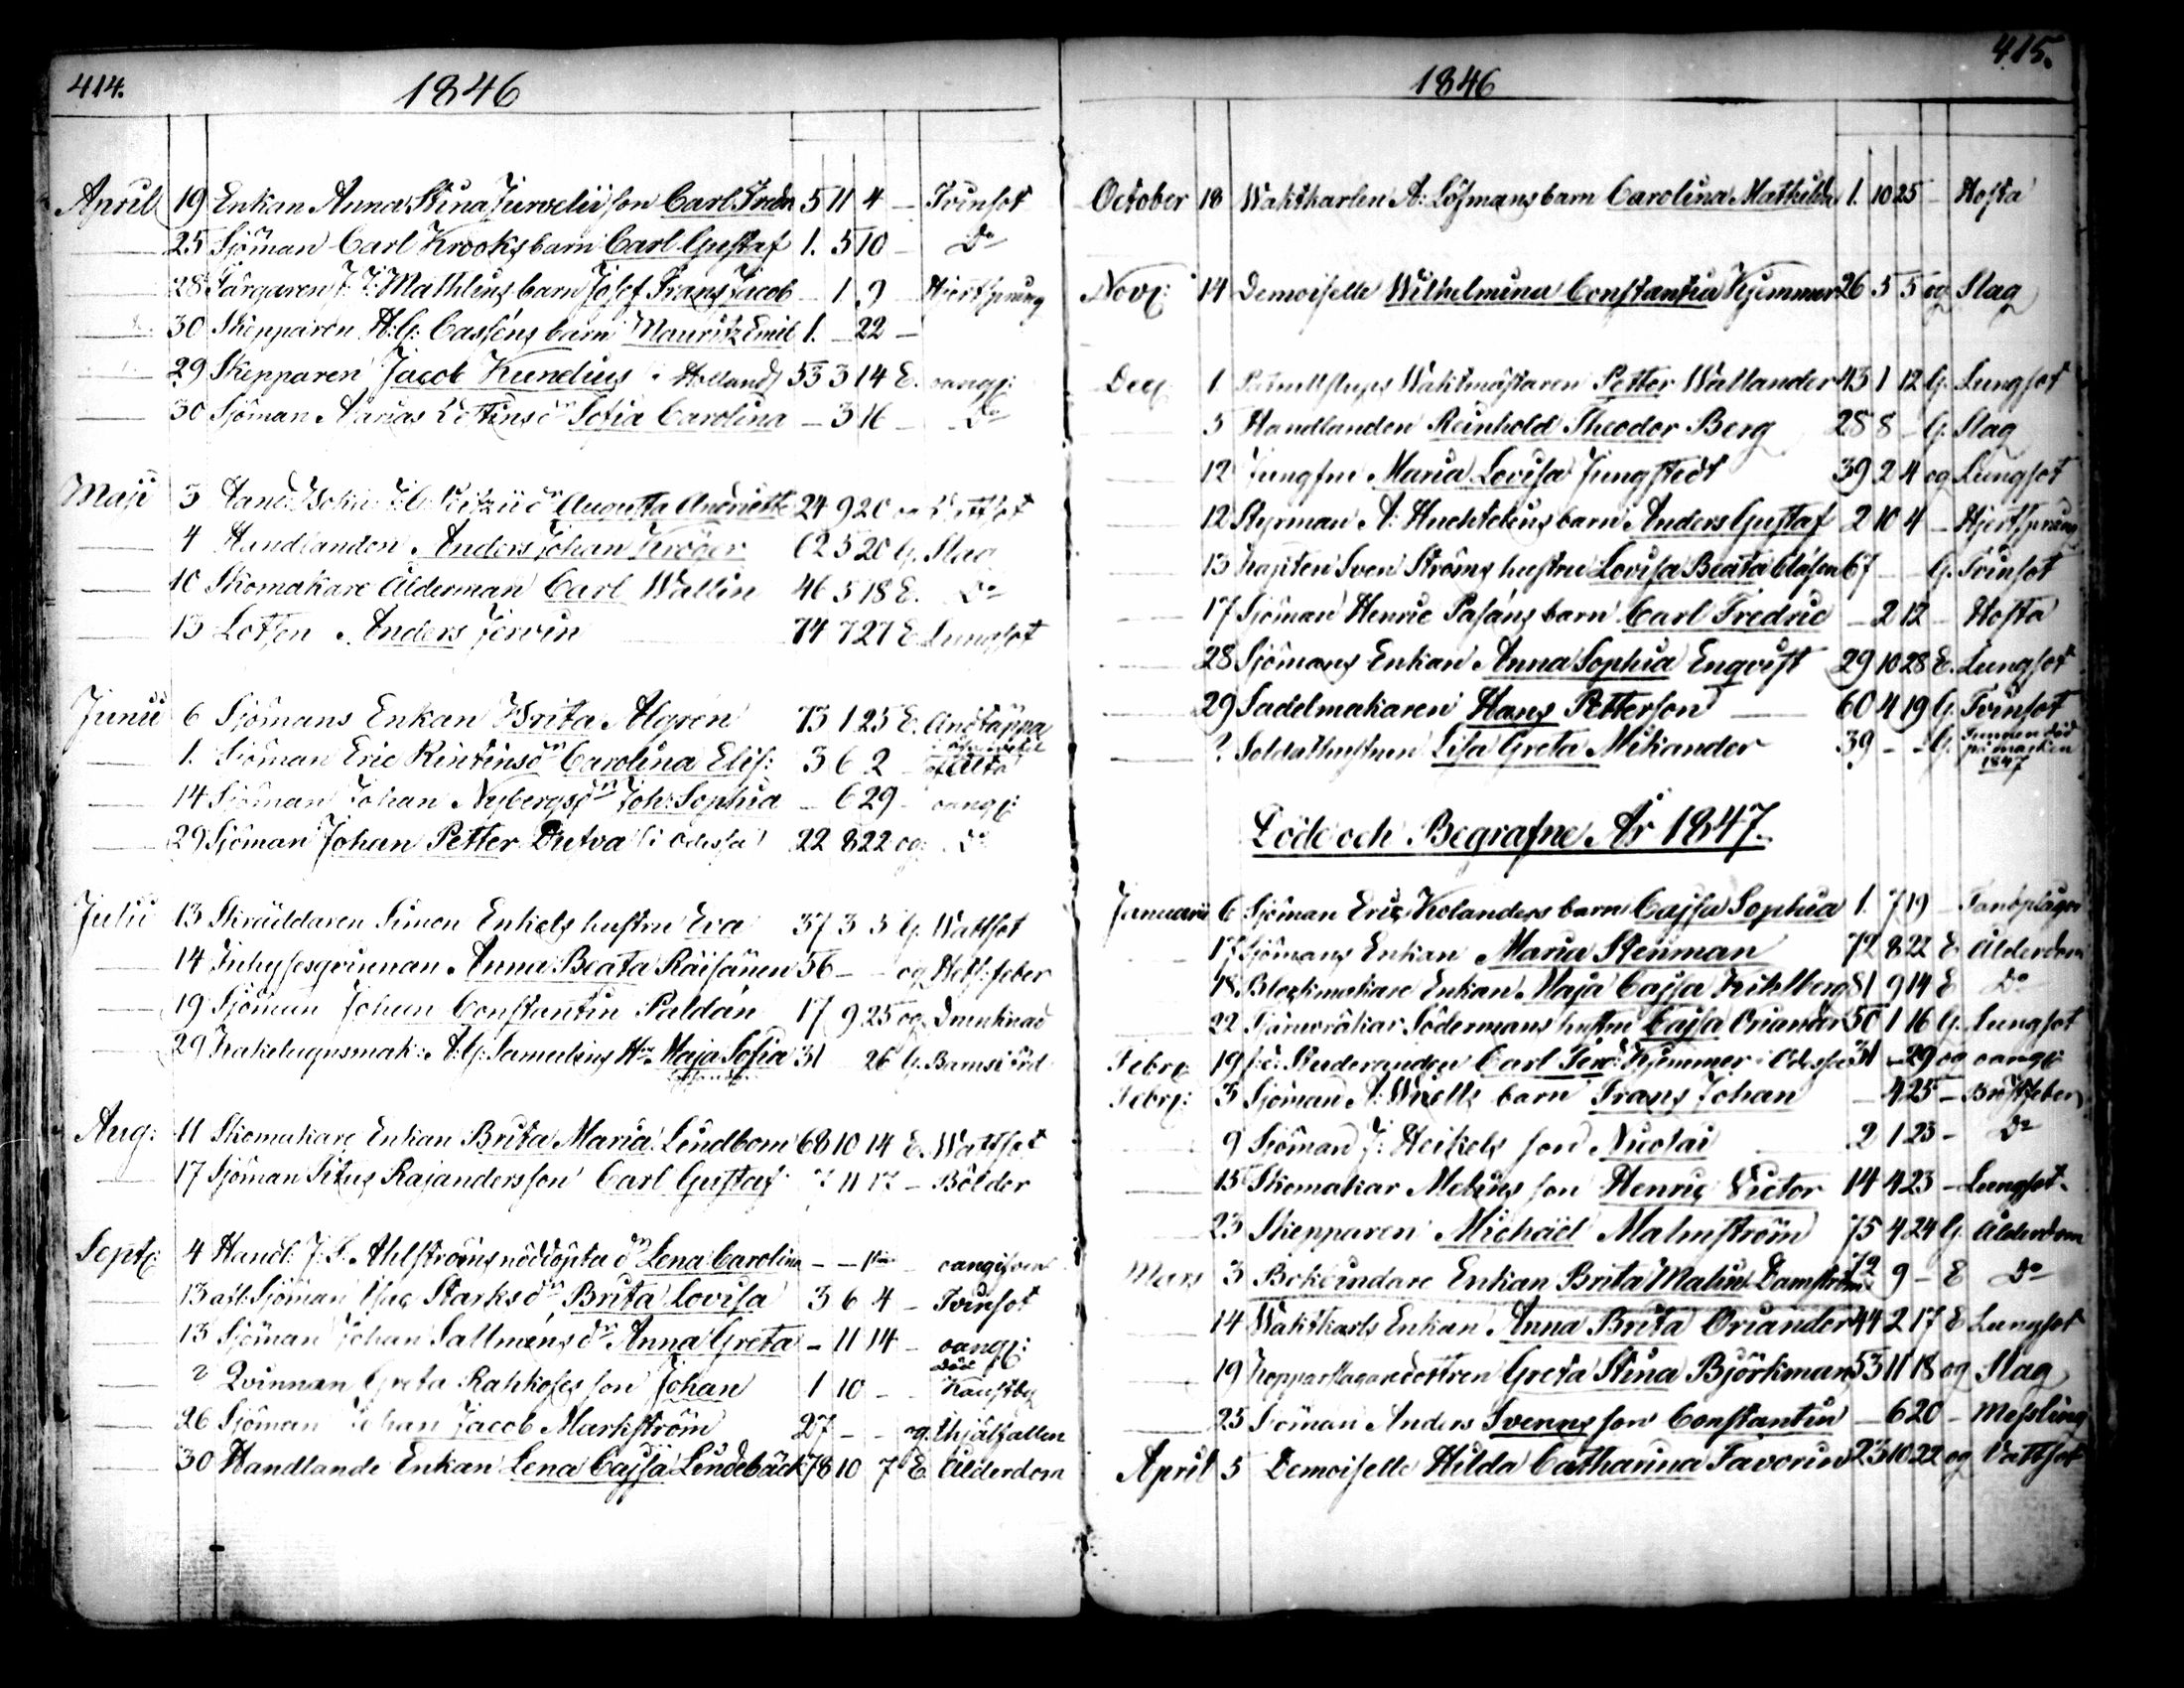 414.
1846
April 19 Enkan Anna Stina son Carl Fredr 5 11 4 – Tvinsot
25 Sjöman Carl Krooks barn Carl Gustaf 1. 5 10 – Do
28 Färgaren J. J. Mathlins barn Josef Frans Jacob – 1 9 – Hjertsprång
30 Skepparen A. G. Casséns barn Mauritz Emil 1. – 22 –
29 Skepparen Jacob Kunelius i Holland 53 3 14 E. oangf:
30 Sjöman dr Sofia Carolina – 3 16 – Do
Maji 3 dr Augusta Andriette 24 9 20 og
4 Handlanden Anders Johan Kröger 62 5 20 G. Slag
10 Skomakare Ålderman Carl Wallin 46 5 18 E. Do
13 Lotsen Anders Jervin 74 7 27 E. Lungsot
Junii 6 Sjömans Enkan Brita Algren 73 1 25 E. Andtäppa
1. Sjöman Eric dr Carolina Elis: 3 6 2 –
14 Sjöman Johan Nybergs dr Joh: Sophia – 6 29 – oangf:
29 Sjöman Johan Petter Dutva (i Odessa) 22 8 22 og: Do
Julii 13 Skräddaren Simon Enkels hustru Eva 37 3 5 G. Wattsot
14 Inhysesqvinnan Anna Beata Räisänen 56 – – og Het: feber
19 Sjöman Johan Constantin Paldán 17 9 25 og Drunknad
29 Kakelugnsmak: A. G. Samulins Hu Maja Sofia 31 – 26 G. Barnsbörd
Aug: 11 Skomakare Enkan Brita Maria Lindbom 68 10 14 E. Wattsot
17 Sjöman Titus Rajanders son Carl Gustaf 7 11 17 – Bölder
Septr: 4 Handl: J. F. Ahlströms nöddöpta dr Lena Carolina – – 1 tim – oangifven
13 afl: Sjöman Isac Starks dr Brita Lovisa 3 6 4 – Tvinsot
13 Sjöman Johan Sallméns dr Anna Greta – 11 14 – oangf:
? Qvinnan Greta Rahkoses son Johan 1 10 – – Död i Kaustby
26 Sjöman Johan Jacob Markström 27 – – og. Ihjälfallen
30 Handlande Enkan Lena Cajsa Lindebäck 78 10 7 E Ålderdom
415.
1846
October 18 Waktkarlen A: Löfmans barn Carolina Mathilda 1. 10 25 – Hosta
Novr: 14 Demoiselle Wilhelmina Constantia Kjemmer 26 5 5 og Slag
Decr 1 Waktmästaren Petter Wallander 43 1 12 G. Lungsot
5 Handlanden Reinhold Theodor Berg 28 8 – G. Slag
12 Jungfru Maria Lovisa Jungstedt 39 2 4 og Lungsot
12 Styrman A: barn Anders Gustaf 2 10 4 – Hjertsprång
13 Kapiten Sven Ströms hustru Lovisa Beata Clasen 67 – – G. Tvinsot
17 Sjöman Henric Pasáns barn Carl Fredric – 2 12 – Hosta
28 Sjömans Enkan Anna Sophia Enqvist 29 10 28 E. Lungsot
29 Sadelmakaren Hans Petterson 60 4 19 G. Tvinsot
? Soldathustrun Lisa Greta Mikander 39 – – G. Funnen död på marken 1847
Döde och Begrafne År 1847.
Januarii 6 Sjöman Eric Kolanders barn Cajsa Sophia 1. 7 19 – Tandplågor
17 Sjömans Enkan Maria Stenman 72 8 22 E Ålderdom
18. Blockmakare Enkan Maja Cajsa Kihlberg 81 9 14 E Do
22 Södermans hustru Cajsa Oriander 50 1 16 G. Lungsot
Febr: 19 f:d: Studeranden Carl Ferd: Kjemmer i Odessa 31 – 29 og oangf:
Febr: 3 Sjöman A: barn Frans Johan – 4 25 – Bröstfeber
9 Sjöman J: Heikels son Nicolai 2 1 23 – Do
15 Skomakar Melins son Henric Victor 14 4 23 – Lungsot.
23 Skepparen Michaël Malmström 75 4 24 G. Ålderdom
Mars 3 Enkan Brita Malin Damström 72 9 – E Do
14 Waktkarls Enkan Anna Brita Oriander 44 2 17 E Lungsot
19 Kopparslagaredottren Greta Stina Björkman 53 11 18 og Slag
25 Sjöman Anders Svenns son Constantin – 6 20 – Messling
April 5 Demoiselle Hilda Catharina Favorin 23 10 22 og Vattsot